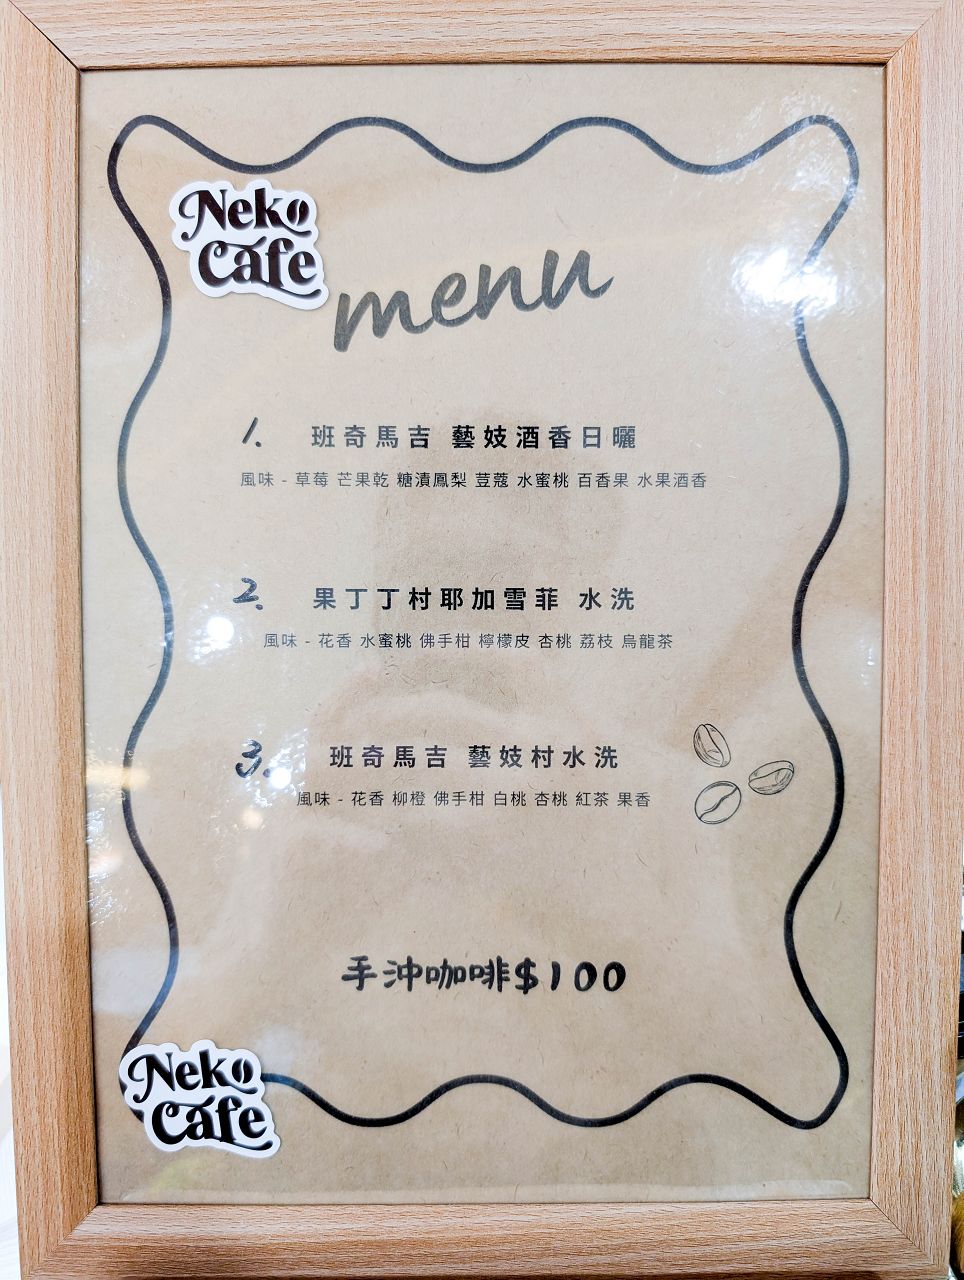 Neko
Cafe
menu
1. 班奇馬吉 藝妓酒香日曬
風味 - 草莓 芒果乾 糖漬鳳梨 荳蔻 水蜜桃 百香果 水果酒香
2. 果丁丁村耶加雪菲 水洗
風味 - 花香 水蜜桃 佛手柑 檸檬皮 杏桃 荔枝 烏龍茶
3. 班奇馬吉 藝妓村水洗
風味 - 花香 柳橙 佛手柑 白桃 杏桃 紅茶 果香
手沖咖啡$100
Neko
Cafe